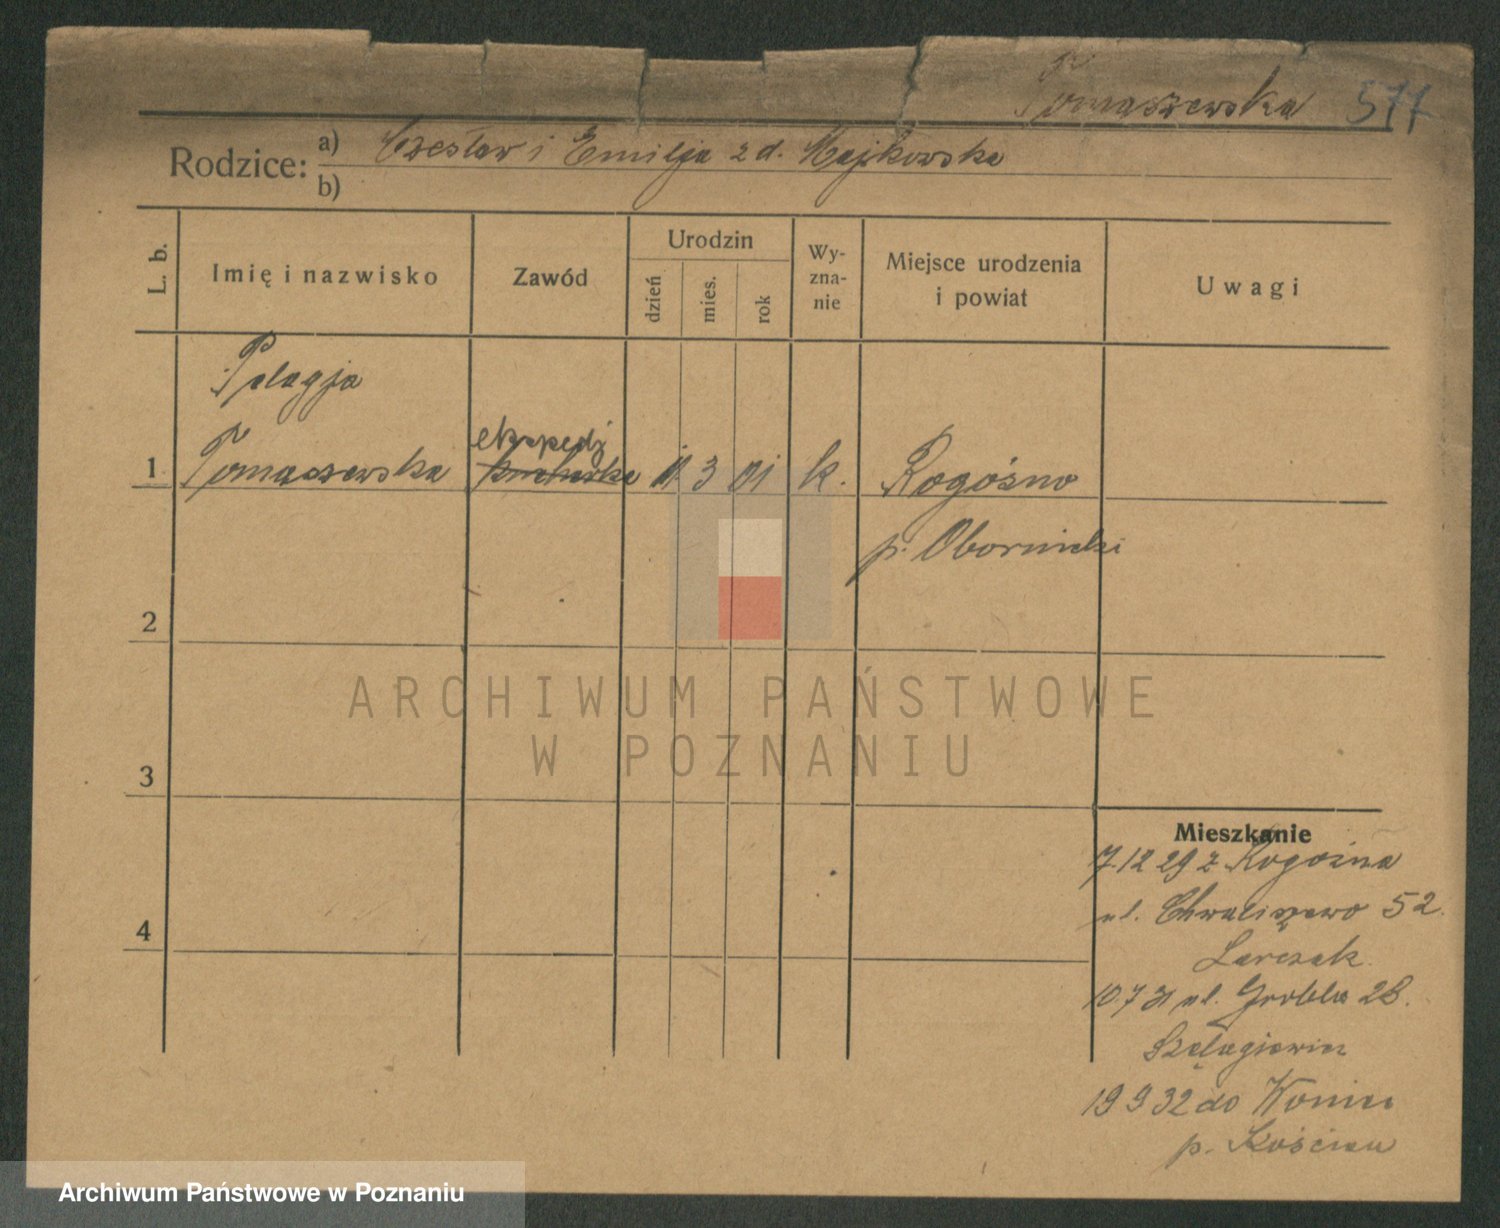 Tomaszewska 577
Rodzice: a) Czesław i Emilja z d. Majkowska
b)
L. b. Imię i nazwisko Zawód Urodzin dzień mies. rok Wyznanie Miejsce urodzenia i powiat Uwagi
Pelagja
ekspedj
1 Tomaszewska kucharka 11. 3 01 k. Rogoźno
p. Obornicki
2
ARCHIWUM PAŃSTWOWE
W POZNANIU
3
Mieszkanie
7.12 29 z Rogoźna
ul. Chwaliszewo 52.
4
Larczak.
10.7 31 ul. Grobla 28.
Szelagiewicz
19 9 32 do
p. Kościan
Archiwum Państwowe w Poznaniu